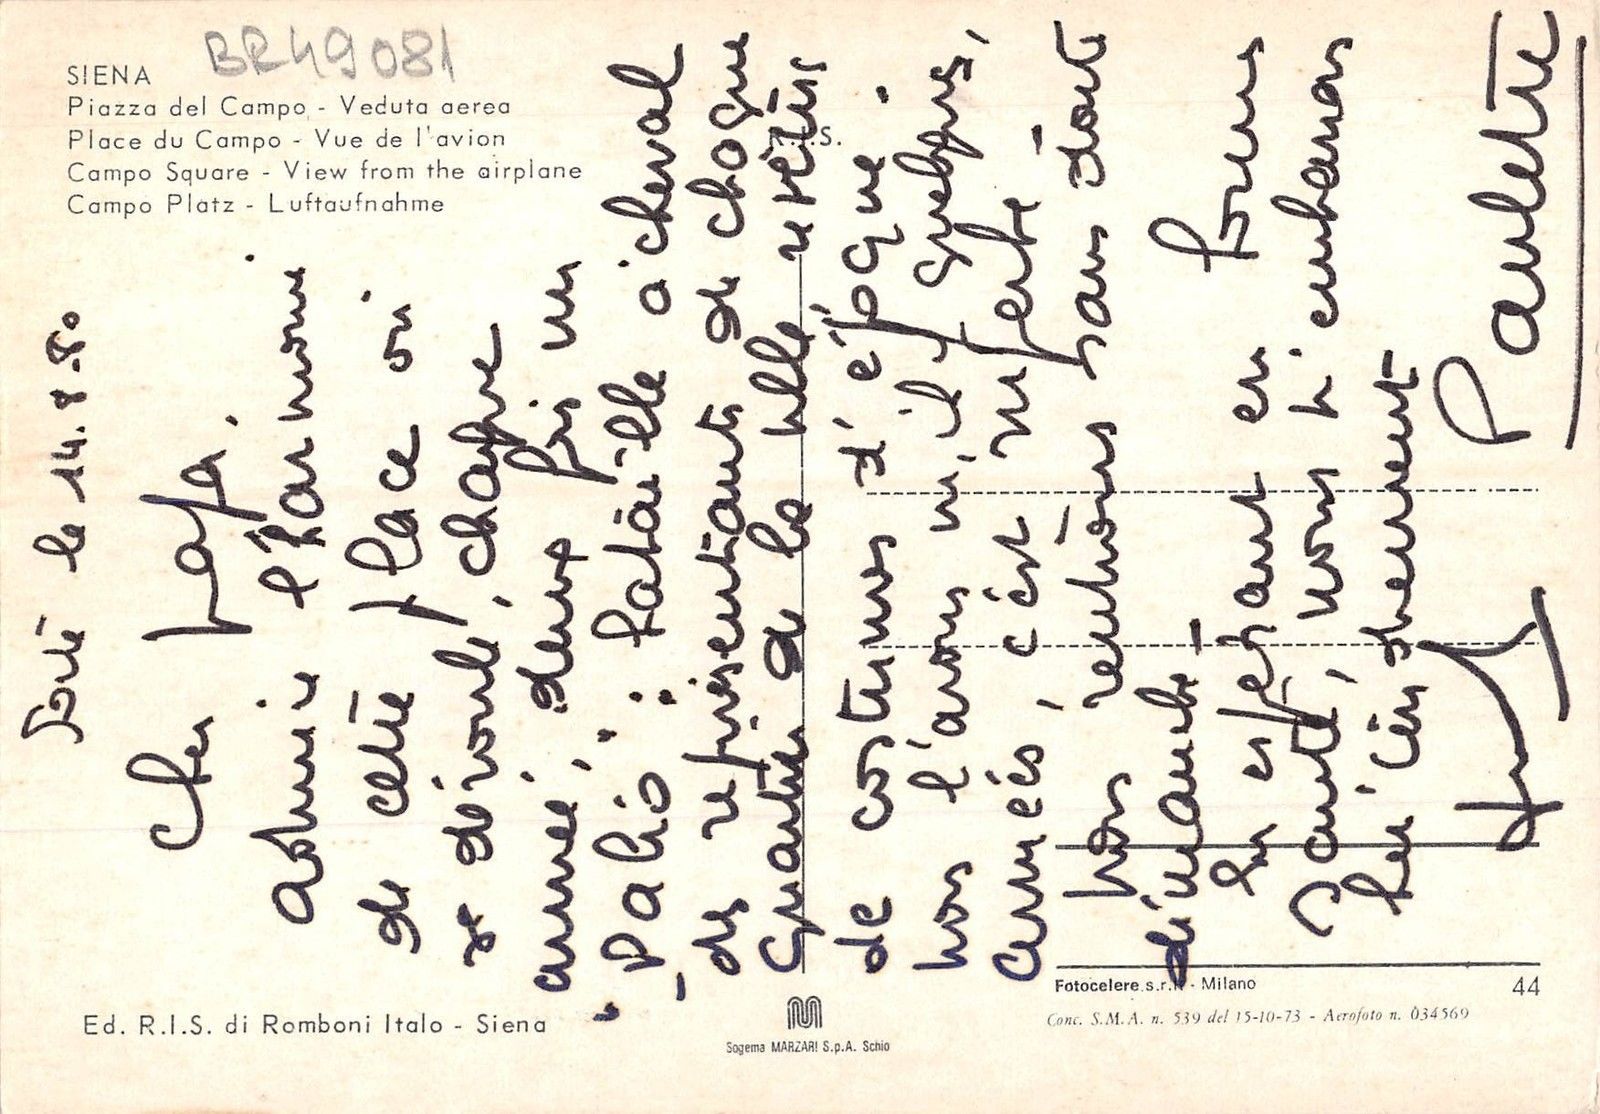 BR49081
SIENA
Piazza del Campo - Veduta aerea
Place du Campo - Vue de l'avion
Campo Square - View from the airplane
Campo Platz - Luftaufnahme
R.I.S.
le 14.8.80
Cher papa,
Admire l'harmonie
de cette place où
se déroule, chaque
année, deux fois un
"Palio": bataille à cheval
des représentants de chaque
Quartier de la ville revêtus
de costumes d'époque.
Nous l'avons vu, il y quelques,
années, c'est superbe
Nous rentrons sans doute
dimanche -
En espérant en bonne
santé, nous t'embrassons
bien tendrement
Paulette
Ed. R.I.S. di Romboni Italo - Siena
Sogema MARZARI S.p.A. Schio
Fotocelere s.r.l. - Milano
44
Conc. S.M.A. n. 539 del 15-10-73 - Aerofoto n. 034569